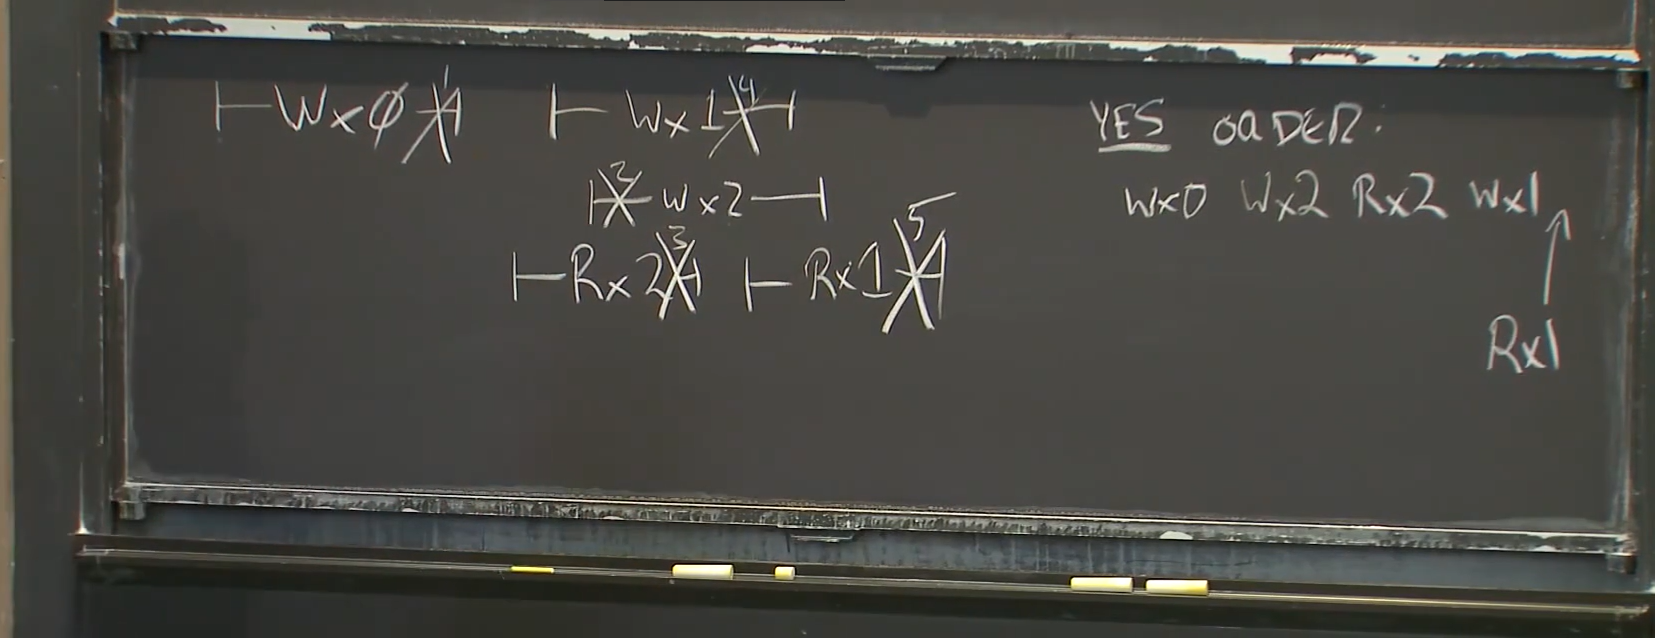 Wx0 1 Wx1 4
2 Wx2
Rx2 3 Rx1 5
YES ORDER:
Wx0 Wx2 Rx2 Wx1
Rx1